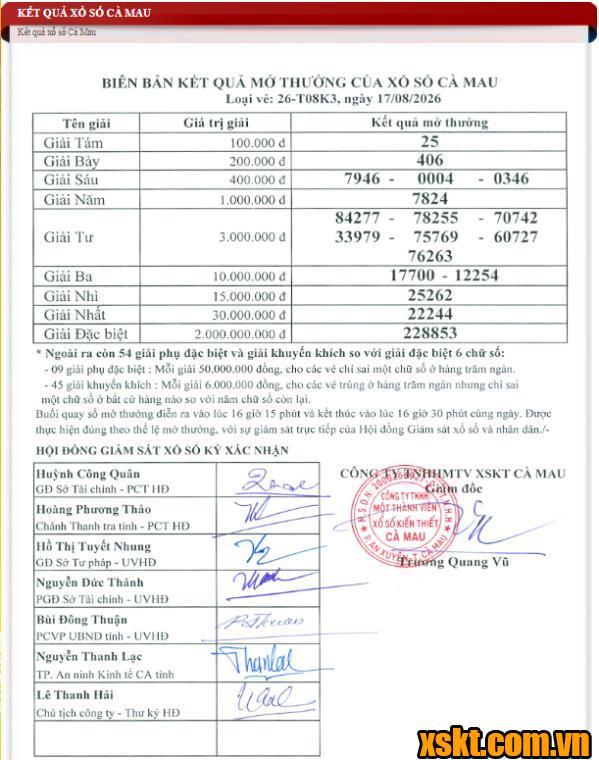 KẾT QUẢ XỔ SỐ CÀ MAU
Kết quả xổ số Cà Mau
BIÊN BẢN KẾT QUẢ MỞ THƯỞNG CỦA XỔ SỐ CÀ MAU
Loại vé: 26-T08K3, ngày 17/08/2026
Tên giải Giá trị giải Kết quả mở thưởng
Giải Tám 100.000 đ 25
Giải Bảy 200.000 đ 406
Giải Sáu 400.000 đ 7946 - 0004 - 0346
Giải Năm 1.000.000 đ 7824
Giải Tư 3.000.000 đ 84277 - 78255 - 70742
33979 - 75769 - 60727
76263
Giải Ba 10.000.000 đ 17700 - 12254
Giải Nhì 15.000.000 đ 25262
Giải Nhất 30.000.000 đ 22244
Giải Đặc biệt 2.000.000.000 đ 228853
* Ngoài ra còn 54 giải phụ đặc biệt và giải khuyến khích so với giải đặc biệt 6 chữ số:
- 09 giải phụ đặc biệt : Mỗi giải 50.000.000 đồng, cho các vé chỉ sai một chữ số ở hàng trăm ngàn.
- 45 giải khuyến khích : Mỗi giải 6.000.000 đồng, cho các vé trúng ở hàng trăm ngàn nhưng chỉ sai
một chữ số ở bất cứ hàng nào so với năm chữ số còn lại.
Buổi quay số mở thưởng diễn ra vào lúc 16 giờ 15 phút và kết thúc vào lúc 16 giờ 30 phút cùng ngày. Được
thực hiện đúng theo thể lệ mở thưởng, với sự giám sát trực tiếp của Hội đồng Giám sát xổ số và nhân dân./-
HỘI ĐỒNG GIÁM SÁT XỔ SỐ KÝ XÁC NHẬN
Huỳnh Công Quân
GĐ Sở Tài chính - PCT HĐ
Hoàng Phương Thảo
Chánh Thanh tra tỉnh - PCT HĐ
Hồ Thị Tuyết Nhung
GĐ Sở Tư pháp - UVHĐ
Nguyễn Đức Thánh
PGĐ Sở Tài chính - UVHĐ
Bùi Đông Thuận
PCVP UBND tỉnh - UVHĐ
Nguyễn Thanh Lạc
TP. An ninh Kinh tế CA tỉnh
Lê Thanh Hải
Chủ tịch công ty - Thư ký HĐ
CÔNG TY TNHHMTV XSKT CÀ MAU
Giám đốc
CÔNG TY TNHH
MỘT THÀNH VIÊN
XỔ SỐ KIẾN THIẾT
CÀ MAU
P. AN XUYÊN - T. CÀ MAU
Trương Quang Vũ
xskt.com.vn